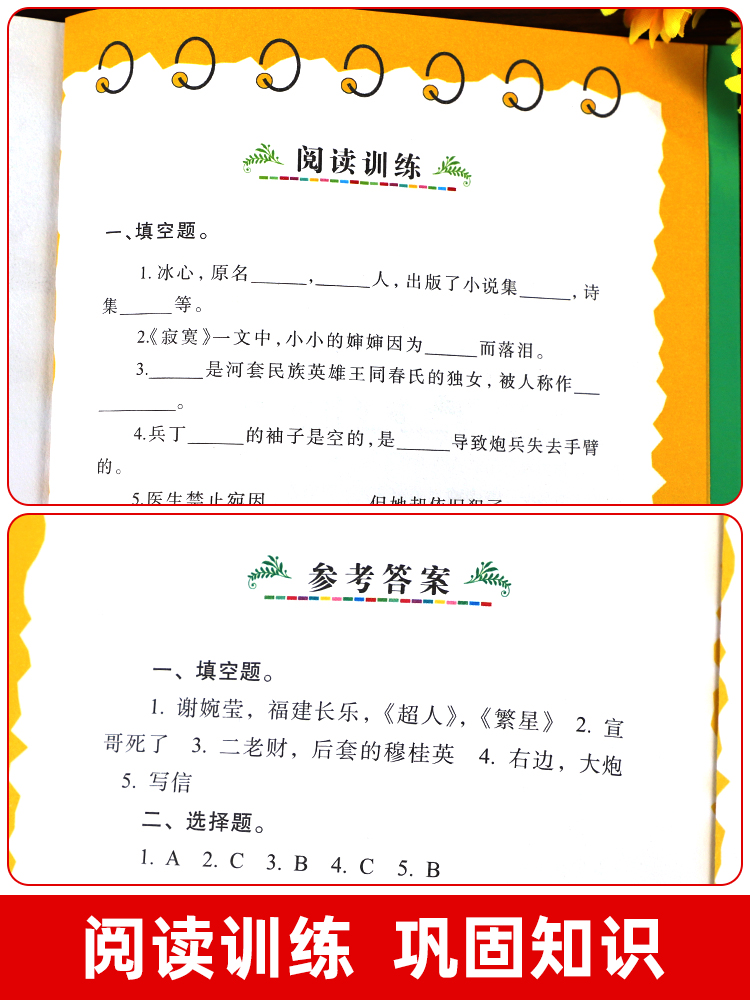 阅读训练
一、填空题。
1.冰心，原名______，______人，出版了小说集______，诗
集______等。
2.《寂寞》一文中，小小的婶婶因为______而落泪。
3.______是河套民族英雄王同春氏的独女，被人称作___
_________。
4.兵丁______的袖子是空的，是______导致炮兵失去手臂
的。
5.医生禁止宛因______
参考答案
一、填空题。
1. 谢婉莹，福建长乐，《超人》，《繁星》 2. 宣
哥死了 3. 二老财，后套的穆桂英 4. 右边，大炮
5. 写信
二、选择题。
1. A 2. C 3. B 4. C 5. B
阅读训练 巩固知识